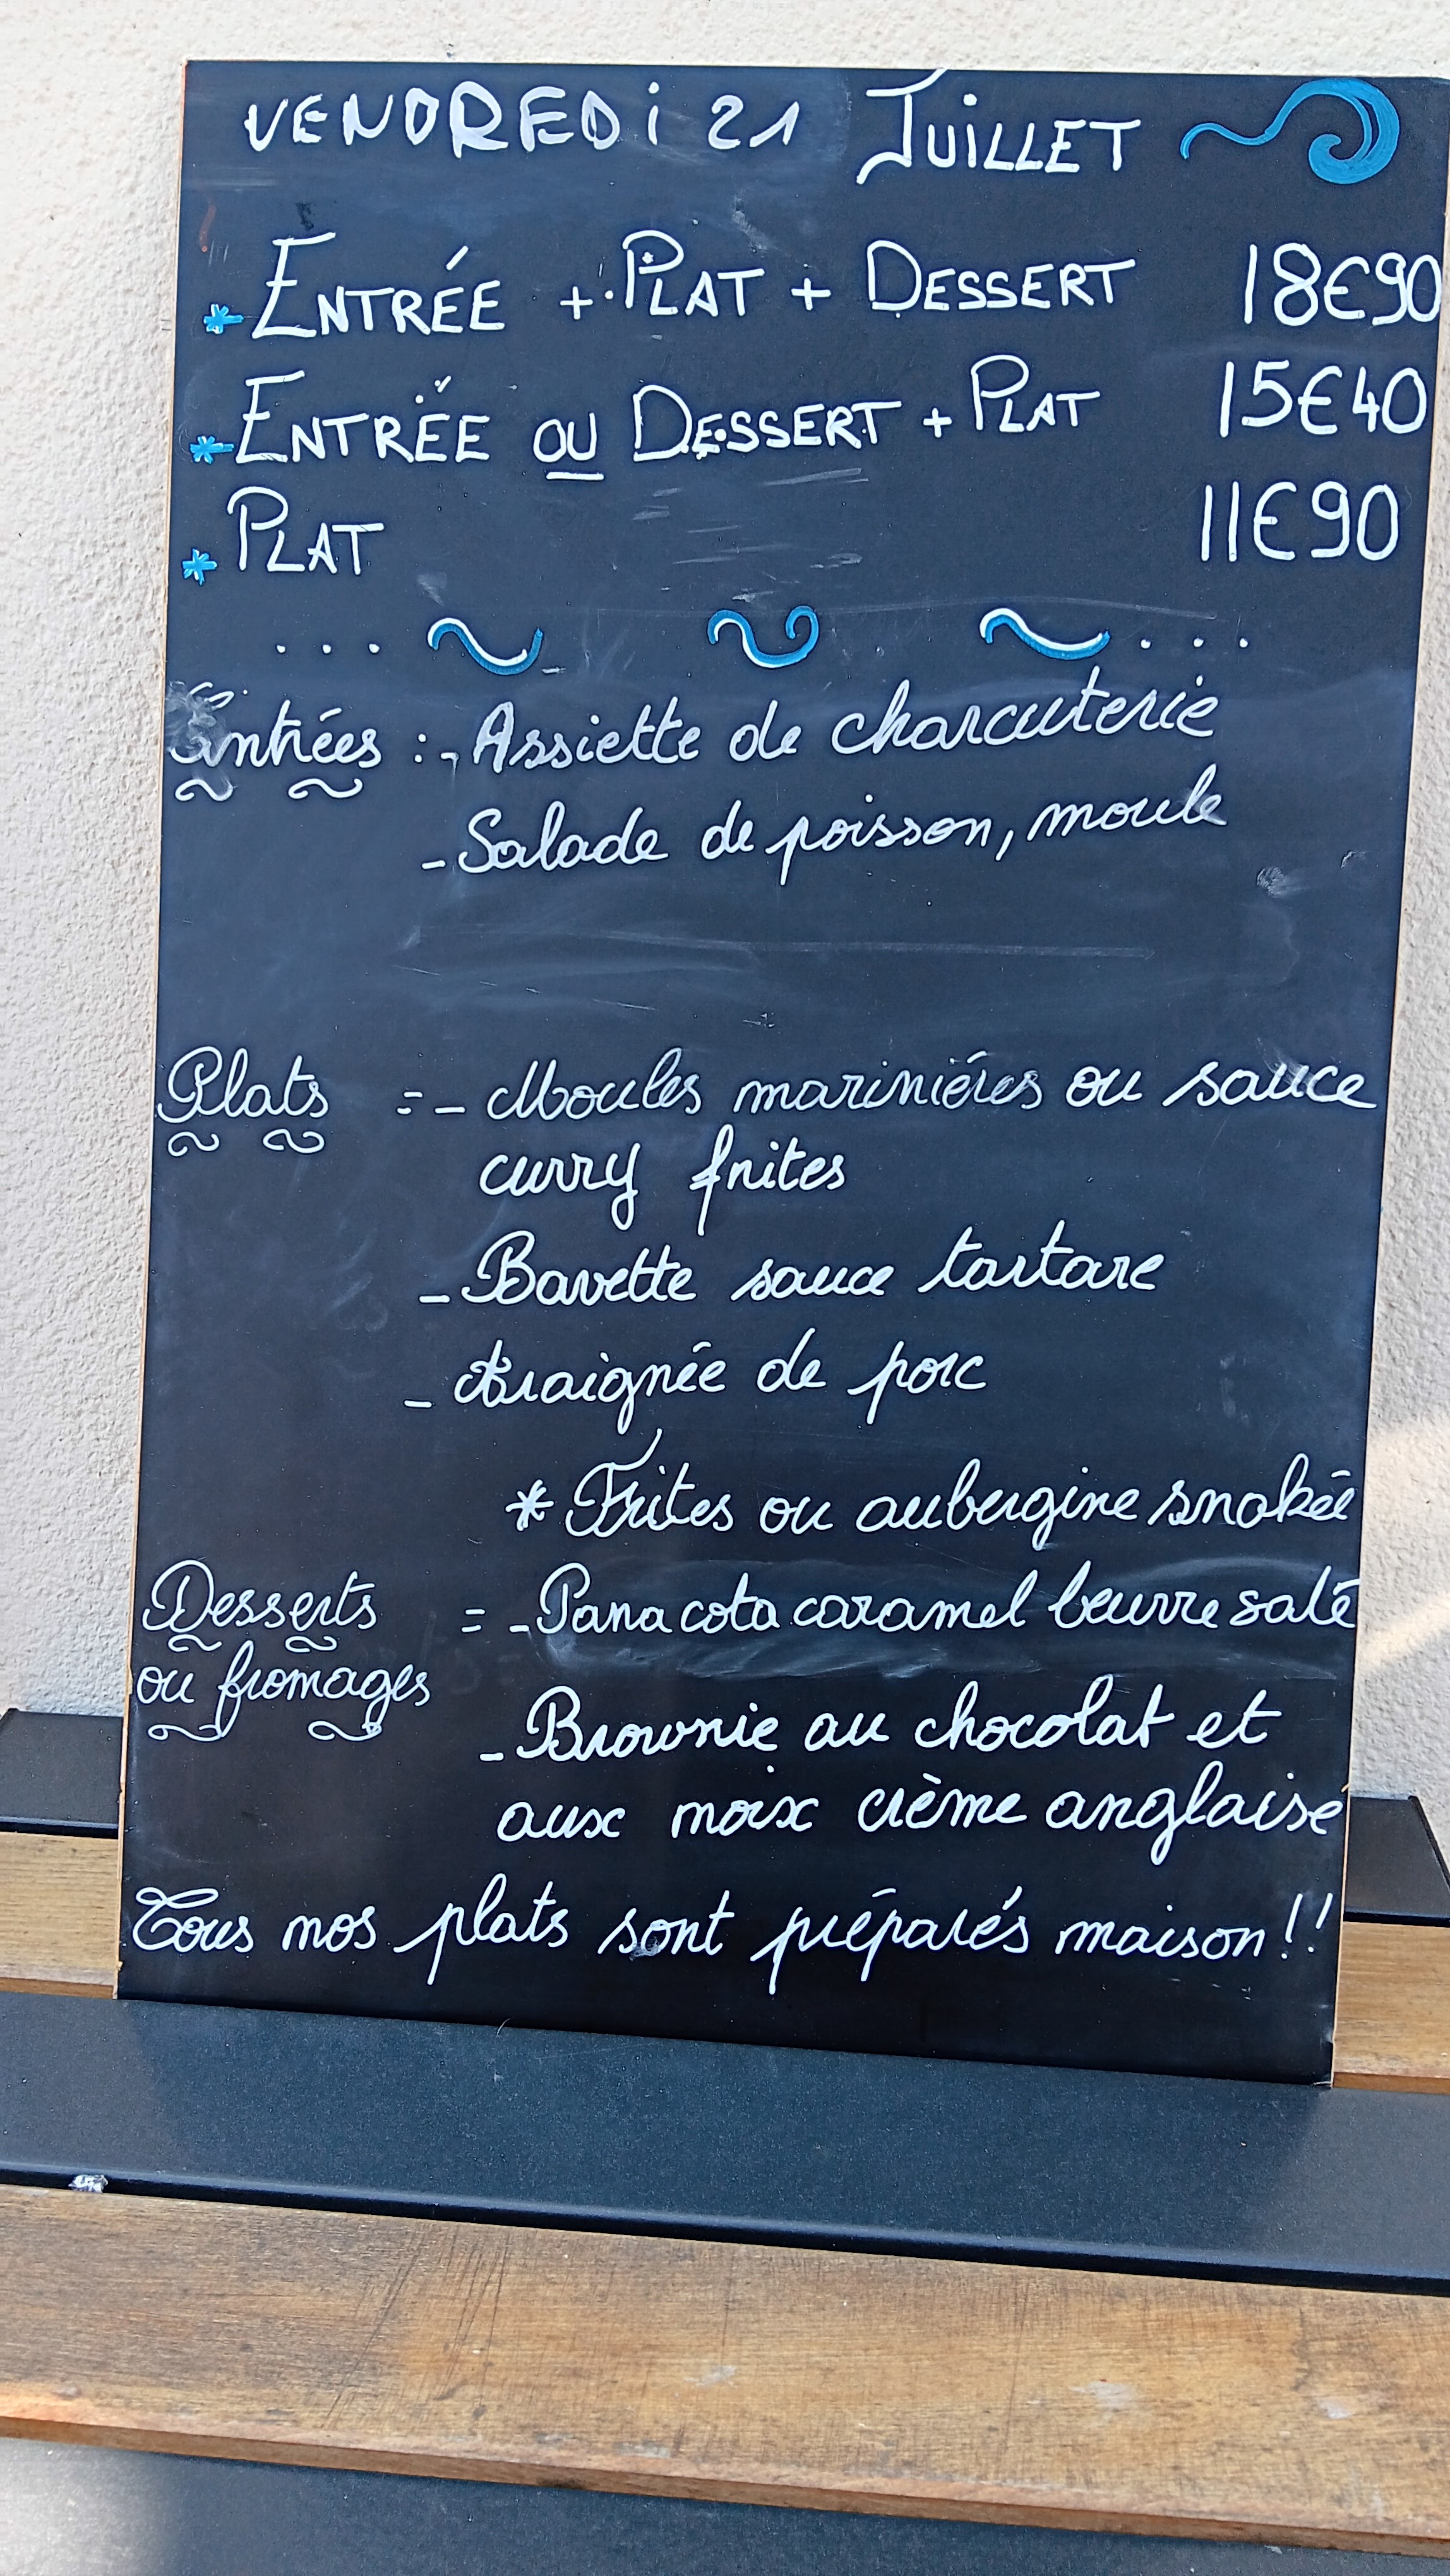 VENDREDi 21 JUILLET
* ENTRÉE + PLAT + DESSERT 18€90
* ENTRÉE OU DESSERT + PLAT 15€40
* PLAT 11€90
Entrées : - Assiette de charcuterie
- Salade de poisson, moule
Plats = - Moules marinières ou sauce
curry frites
- Bavette sauce tartare
- Araignée de porc
* Frites ou aubergine snakée
Desserts = - Pana cota caramel beurre salé
ou fromages
- Brownie au chocolat et
aux noix crème anglaise
Tous nos plats sont préparés maison !!